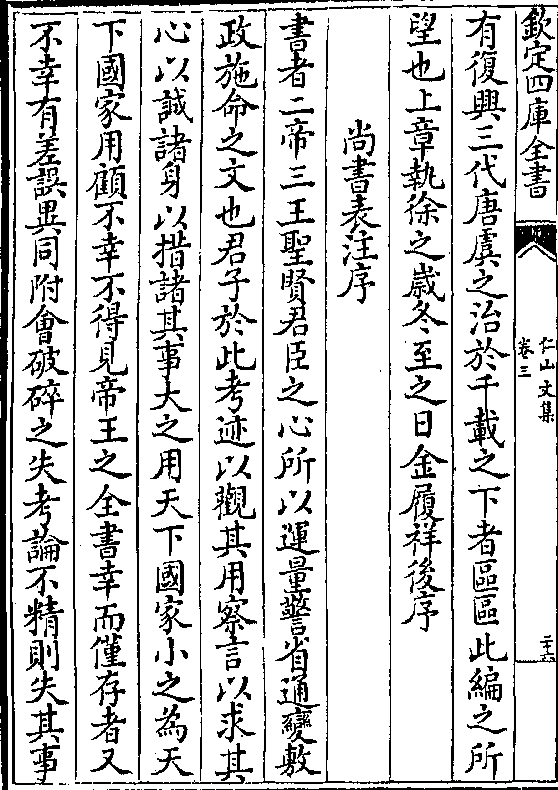 欽定四庫全書
仁山文集
卷三
二十六
有復興三代唐虞之治於千載之下者區區此編之所
望也上章執徐之歲冬至之日金履祥後序
尚書表注序
書者二帝三王聖賢君臣之心所以運量警省通變敷
政施命之文也君子於此考迹以觀其用察言以求其
心以誠諸身以措諸其事大之用天下國家小之為天
下國家用顧不幸不得見帝王之全書幸而僅存者又
不幸有差誤異同附會破碎之失考論不精則失其事